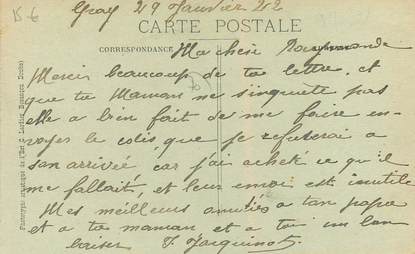 15 €
Gray 29 Janvier 212
CARTE POSTALE
CORRESPONDANCE
Ma chère Raymonde
Merci beaucoup de ta lettre, et
que ta Maman ne s'inquète pas
elle a bien fait de me faire en-
voyer le colis, que je refuserai a
son arrivée car j'ai acheté ce qu'il
me fallait, et leur envoi est inutile
Mes meilleurs amitiés a ton papa
et a ta maman et a toi un bon
baiser J. Jacquinot